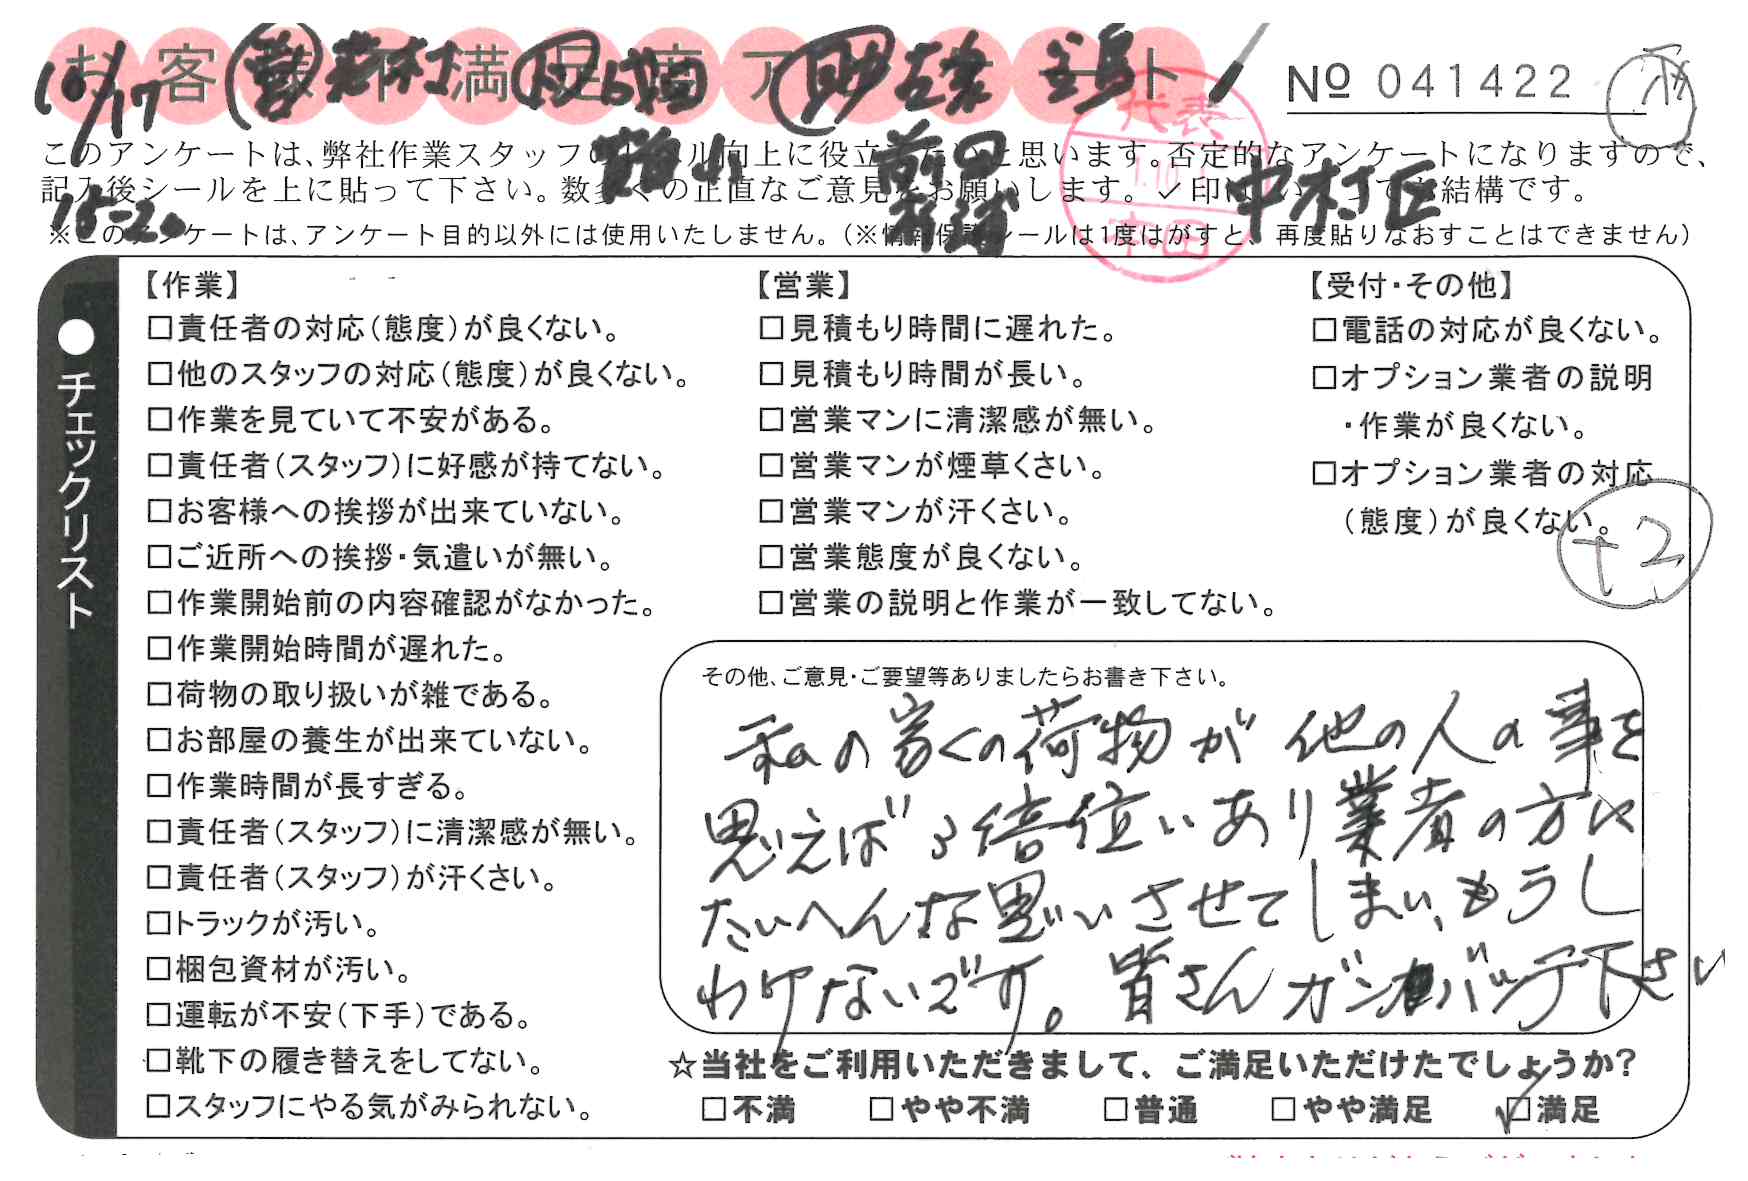 お客様不満足度アンケート
10/17 営 若村 助
№ 041422
このアンケートは、弊社作業スタッフの向上に役立と思います。否定的なアンケートになりますので、
記入後シールを上に貼って下さい。数多くの正直なご意見をお願いします。✓印はいても結構です。
15-20 前田 中村区
※このアンケートは、アンケート目的以外には使用いたしません。(※情報保護シールは1度はがすと、再度貼りなおすことはできません)
代表
本田
●チェックリスト
【作業】
□責任者の対応(態度)が良くない。
□他のスタッフの対応(態度)が良くない。
□作業を見ていて不安がある。
□責任者(スタッフ)に好感が持てない。
□お客様への挨拶が出来ていない。
□ご近所への挨拶・気遣いが無い。
□作業開始前の内容確認がなかった。
□作業開始時間が遅れた。
□荷物の取り扱いが雑である。
□お部屋の養生が出来ていない。
□作業時間が長すぎる。
□責任者(スタッフ)に清潔感が無い。
□責任者(スタッフ)が汗くさい。
□トラックが汚い。
□梱包資材が汚い。
□運転が不安(下手)である。
□靴下の履き替えをしてない。
□スタッフにやる気がみられない。
【営業】
□見積もり時間に遅れた。
□見積もり時間が長い。
□営業マンに清潔感が無い。
□営業マンが煙草くさい。
□営業マンが汗くさい。
□営業態度が良くない。
□営業の説明と作業が一致してない。
【受付・その他】
□電話の対応が良くない。
□オプション業者の説明
・作業が良くない。
□オプション業者の対応
(態度)が良くない。
+2
その他、ご意見・ご要望等ありましたらお書き下さい。
私の家くの荷物が他の人の事を
思えば3倍位いあり業者の方に
たいへんな思いさせてしまい、もうし
わけないです。皆さんガンバッテ下さい
☆当社をご利用いただきまして、ご満足いただけたでしょうか?
□不満 □やや不満 □普通 □やや満足 ☑満足